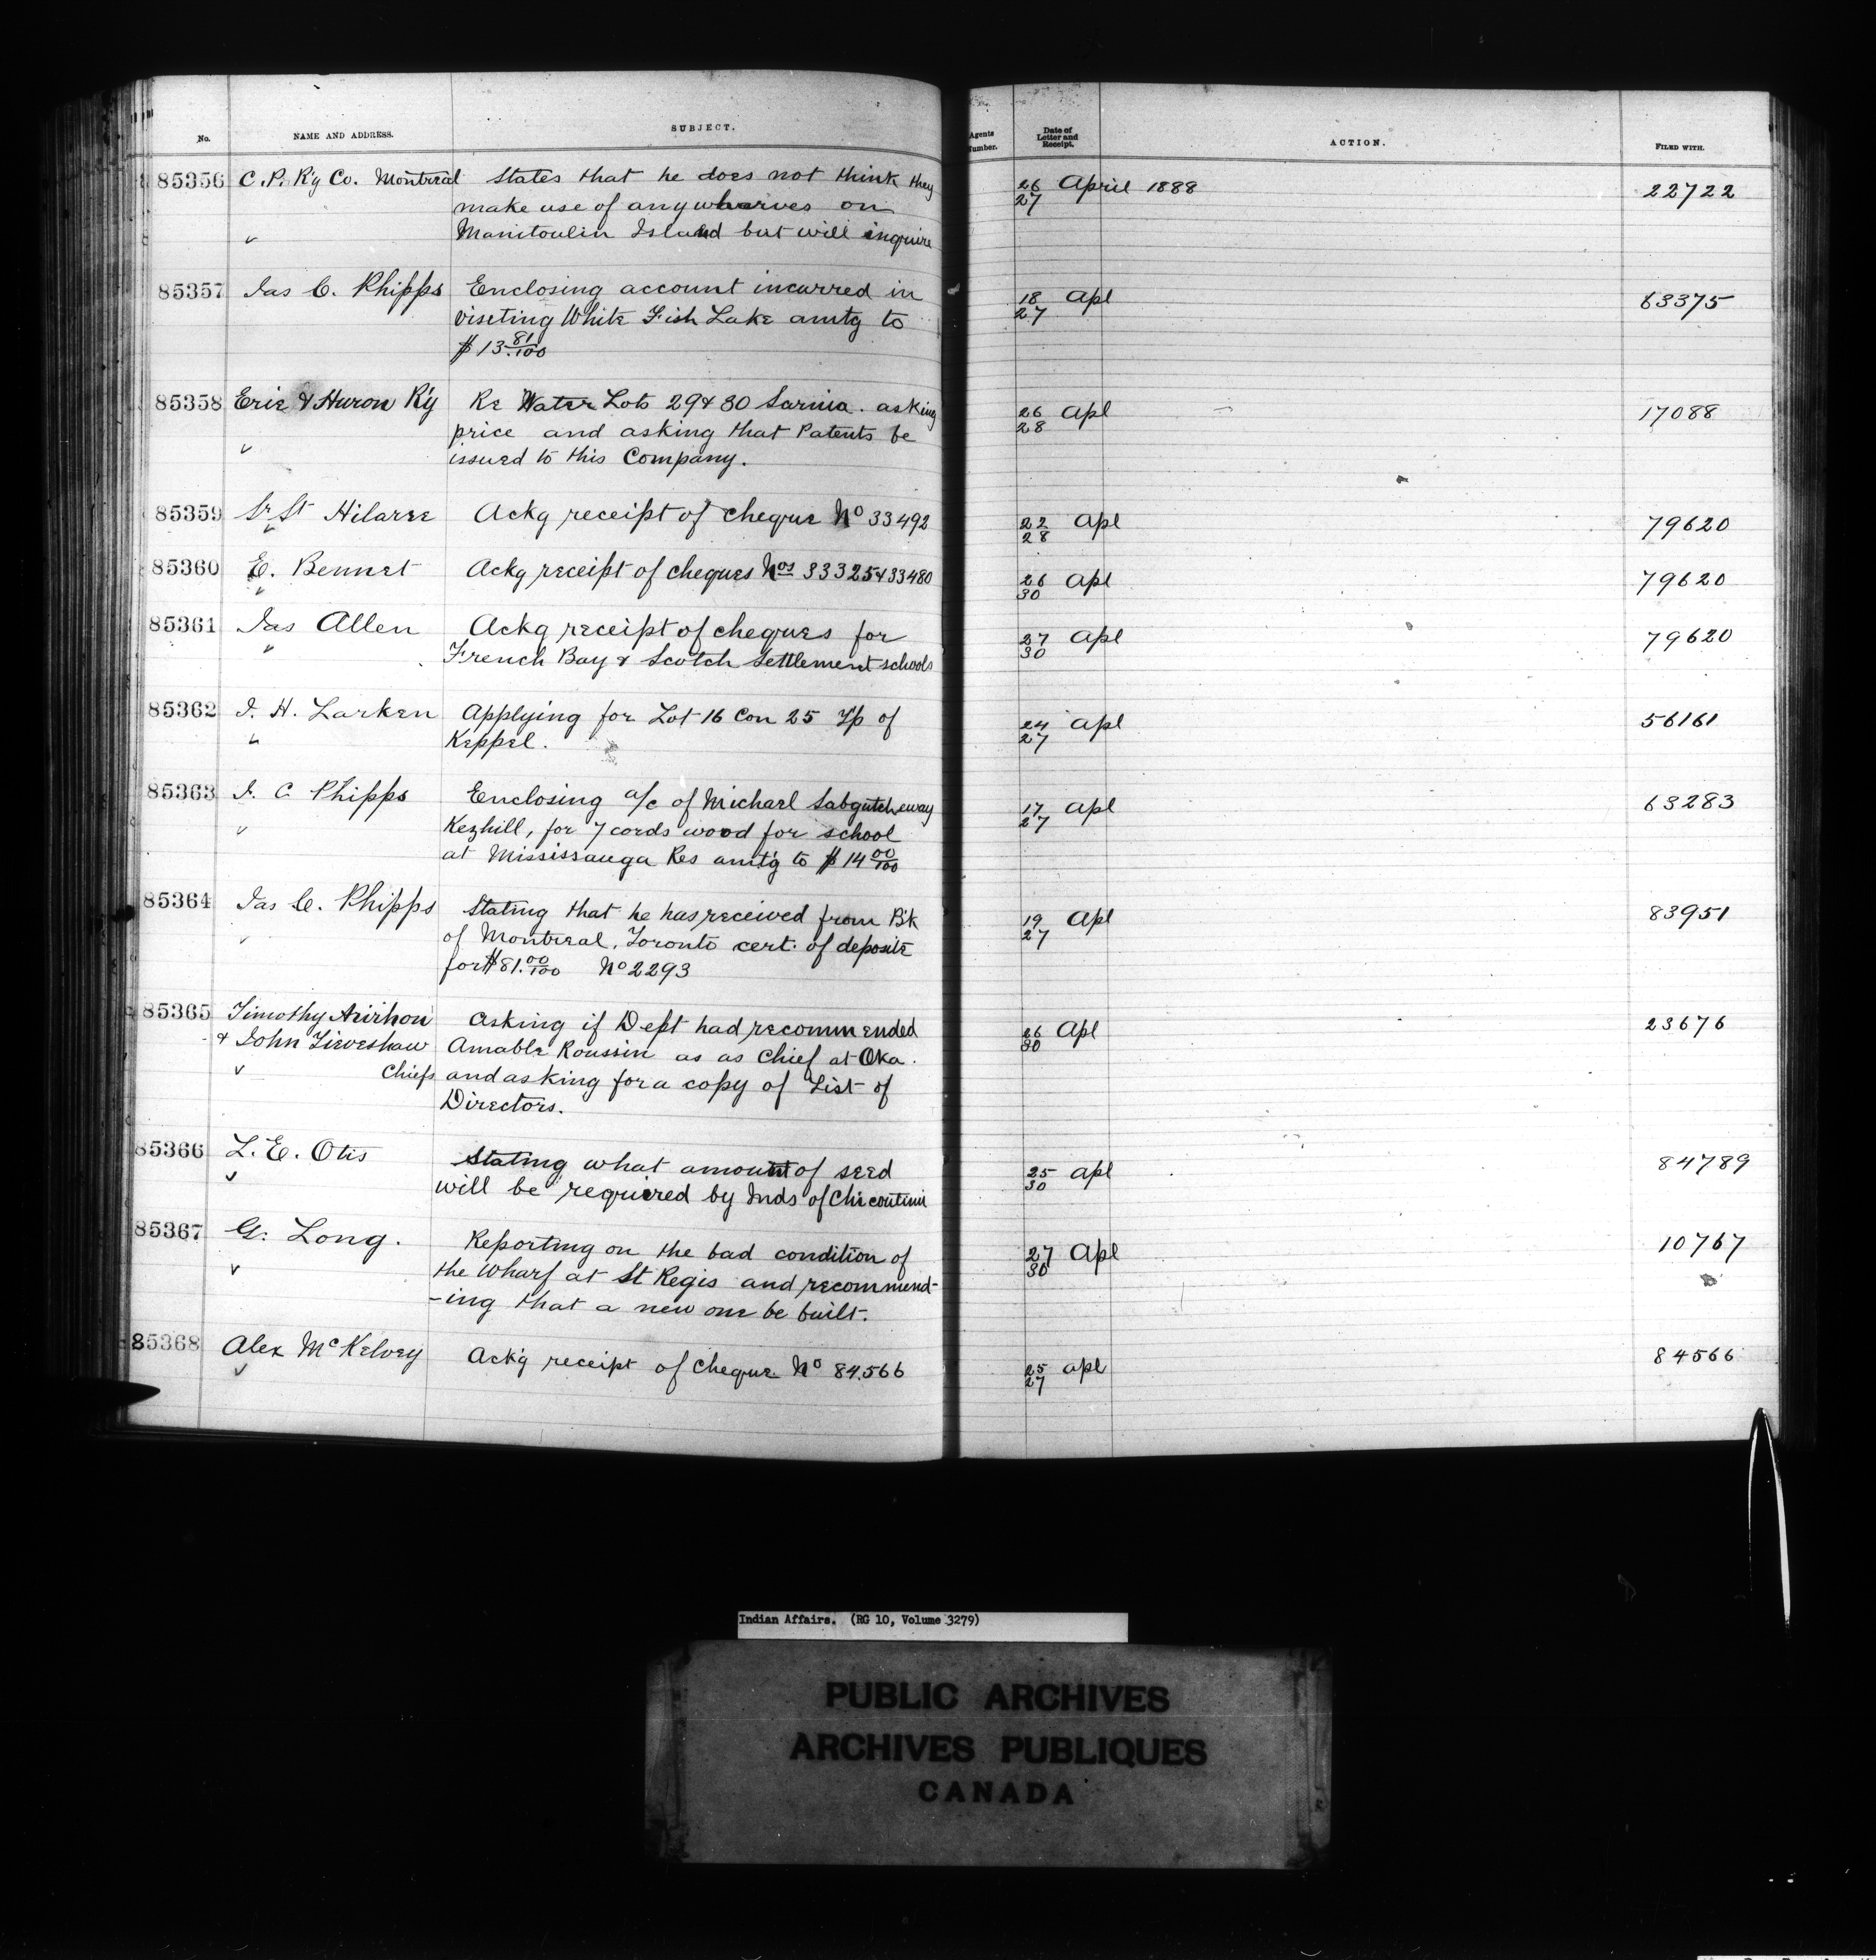 No. NAME AND ADDRESS. SUBJECT. Agents Number. Date of Letter and Receipt. ACTION. FILED WITH.
85356 C.P. R'y Co. Montreal States that he does not think they 26/27 April 1888 22722
make use of any wharves on
Manitoulin Island but will inquire
85357 Jas C. Phipps Enclosing account incurred in 18/27 Apl 63375
visiting White Fish Lake amtg to
$13.81/100
85358 Erie & Huron R'y Re Water Lots 29 & 30 Sarnia. asking 26/28 Apl 17088
price and asking that Patents be
issued to this Company.
85359 Sr St Hilaree Ackg receipt of cheque No 33492 22/28 Apl 79620
85360 E. Bennet Ackg receipt of cheques Nos 33325 & 33480 26/30 Apl 79620
85361 Jas Allen Ackg receipt of cheques for 27/30 Apl 79620
French Bay & Scotch Settlement schools
85362 J. H. Larken Applying for Lot 16 Con 25 Tp of 24/27 Apl 56161
Keppel.
85363 J. C Phipps Enclosing a/c of Michael Sabgutcheway 17/27 Apl 63283
Kezhill, for 7 cords wood for school
at Mississauga Res amt'g to $14 00/100
85364 Jas C. Phipps Stating that he has received from B'k 19/27 Apl 83951
of Montreal, Toronto cert. of deposite
for $81.00/100 No 2293
85365 Timothy Arirhon Asking if Dept had recommended 26/30 Apl 23676
& John Tieveshaw Amable Roussin as as Chief at Oka.
Chiefs and asking for a copy of List of
Directors.
85366 L. E. Otis Stating what amount of seed 25/30 Apl 84789
will be required by Inds of Chicoutimi
85367 G. Long. Reporting on the bad condition of 27/30 Apl 10767
the Wharf at St Regis and recommend-
-ing that a new one be built.
85368 Alex McKelvey Ack'g receipt of Cheque No 84.566 25/27 Apl 84566
Indian Affairs. (RG 10, Volume 3279)
PUBLIC ARCHIVES
ARCHIVES PUBLIQUES
CANADA